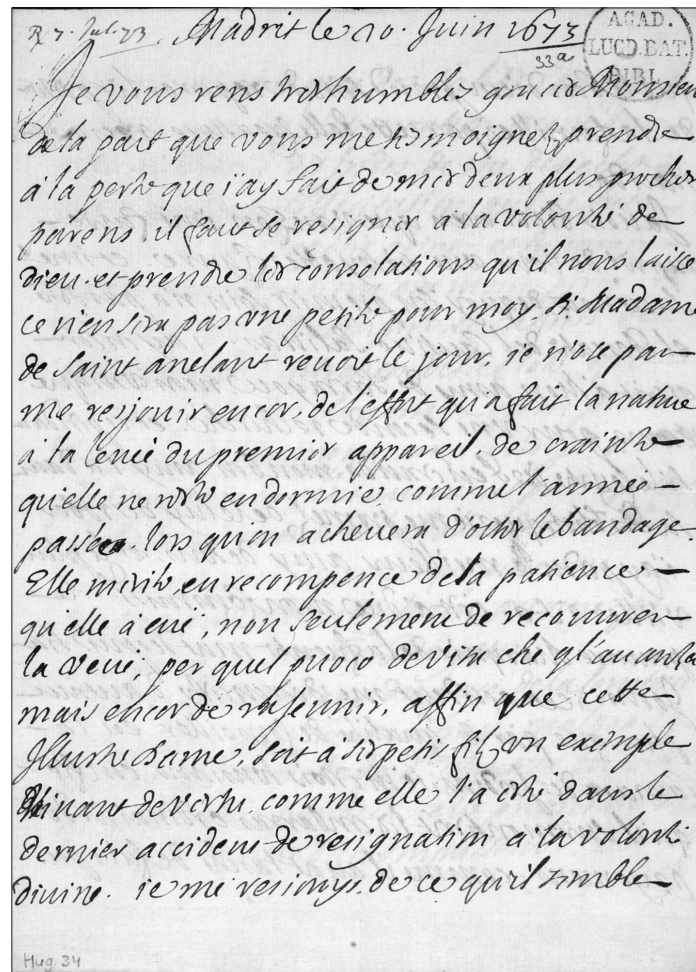 R 7. Jul. 73. Madrit le 20. Juin 1673
33a
ACAD.
LUGD. BAT.
BIBL.
Je vous rens tres humbles graces Monsieur
de la part que vous me tesmoignez prendre
à la perte que i'ay fait de mes deux plus proches
parens. il faut se resigner à la volonté de
dieu. et prendre les consolations qu'il nous laisse
ce n'en sera pas une petite pour moy. si Madame
de Saint anelant revoit le jour. ie n'ose pas
me resjouir encor. de l'effort qu'a fait la nature
à la levée du premier appareil. de crainte
qu'elle ne reste endormie comme l'année
passée. lors qu'on achevera d'oster le bandage.
Elle merite, en recompence de la patience
qu'elle a eue, non seulement de recouvrer
la veue, per quel puoco de vita che gl'auanza
mais encor de rajeunir. affin que cette
Illustre Dame, soit à ses petis filz un exemple
vivant de vertu. comme elle l'a esté dans le
dernier accident de resignation à la volonté
divine. ie me resiouys. de ce qu'il semble
Hug. 34